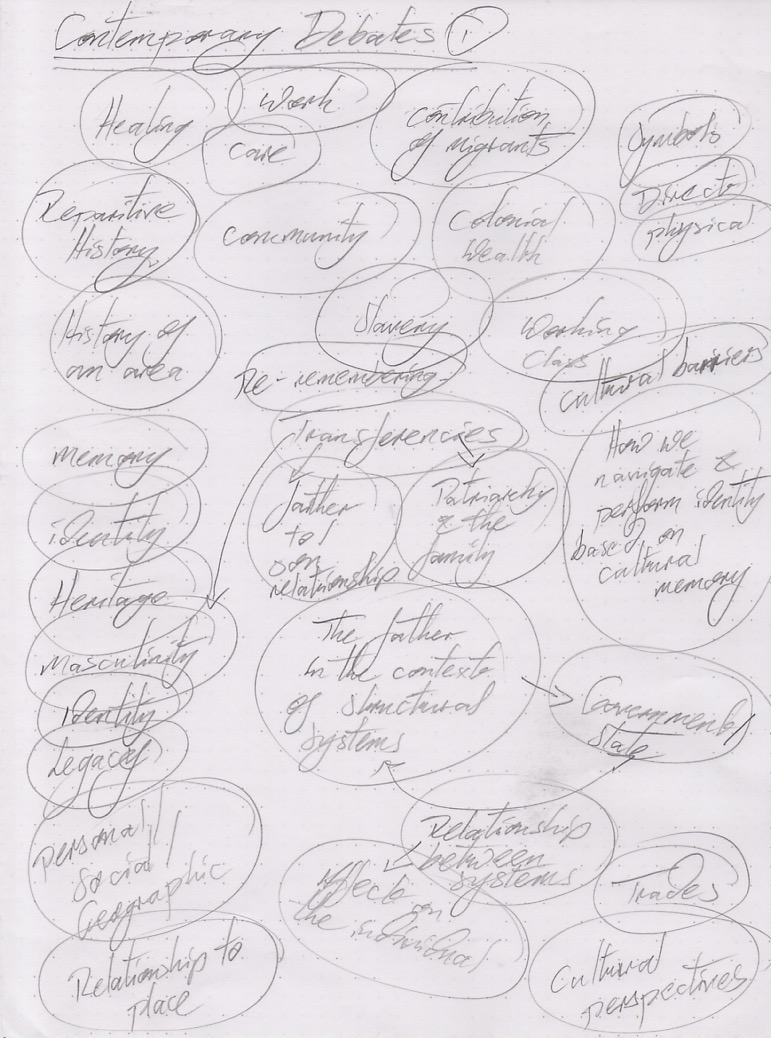 Contemporary Debates 1
Healing
Work
Care
Contribution
of migrants
Symbols
Directo
physical
Reparitive
History
Community
Colonial
Wealth
History of
an area
Slavery
Working
Class
Re-remembering
Cultural barriers
Transferencies
memory
father
to
son
relationship
Patriarchy
& the
family
How we
navigate &
perform identity
based on
cultural
memory
identity
Heritage
masculinity
identity
Legacy
The father
in the contexto
of structural
systems
Government/
state
Personal/
Social/
Geographic
Relationship
between
systems
Affecto on
the individual
Trades
Relationship to
place
Cultural
perspectives